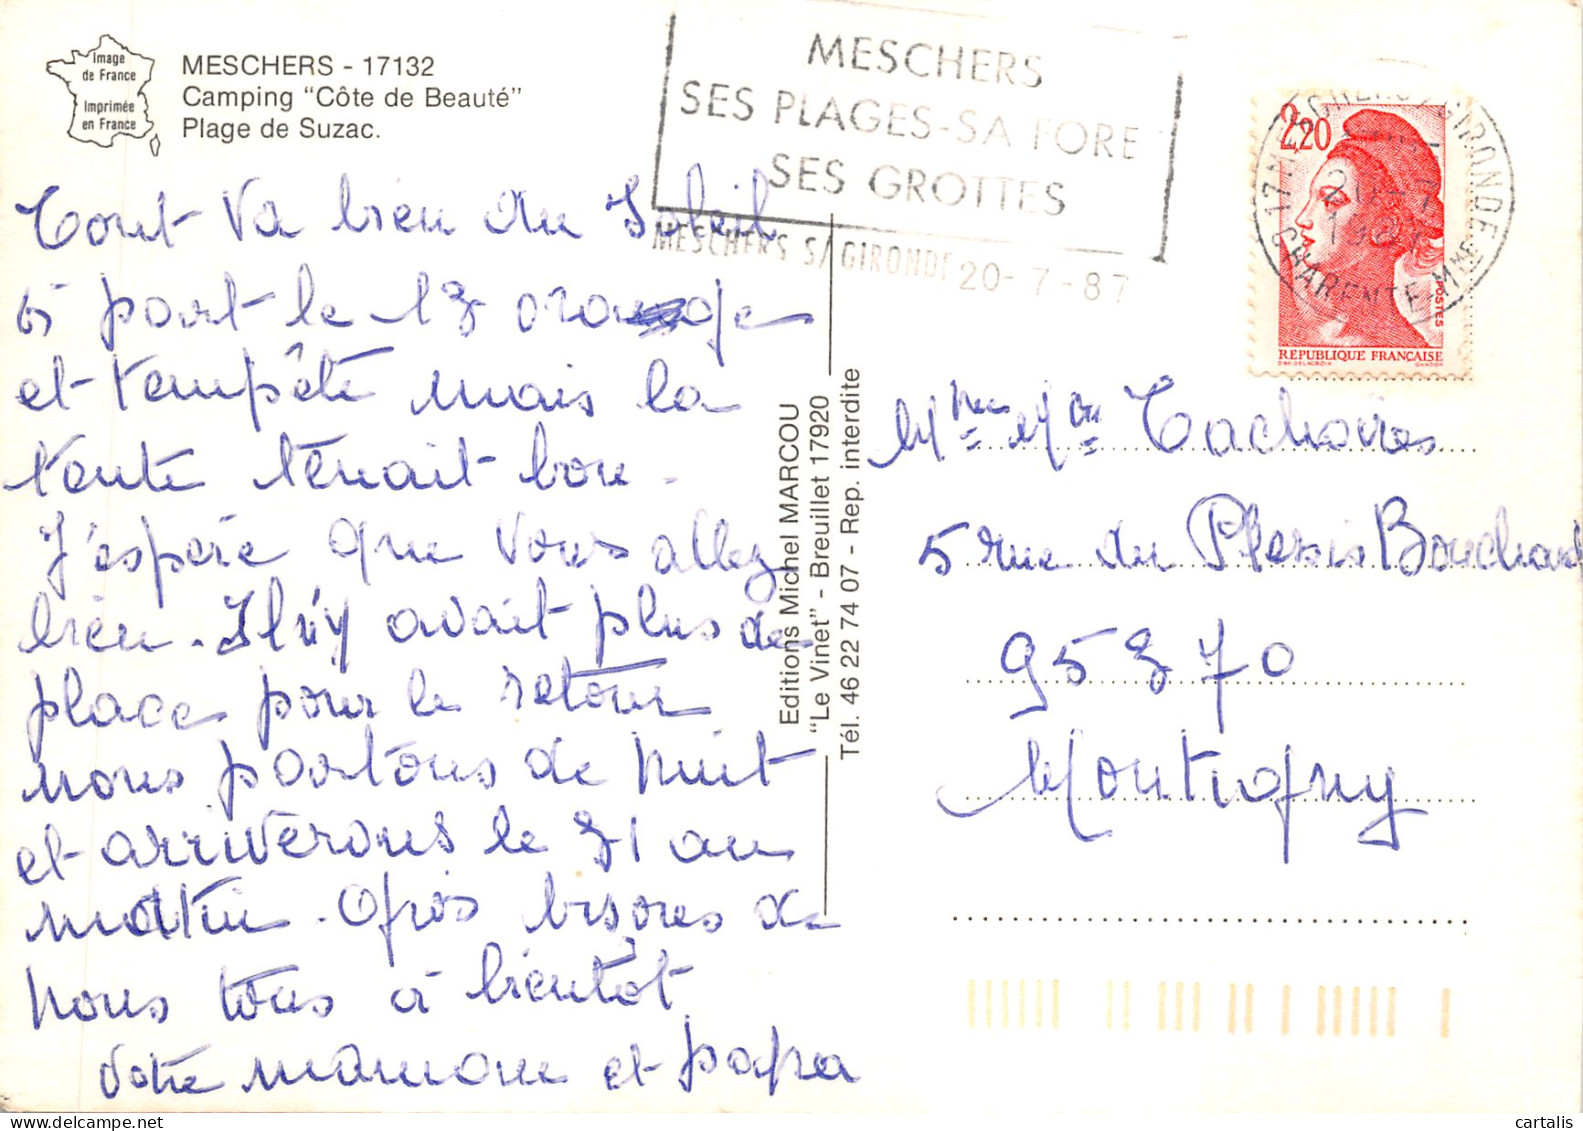 Image
de France
Imprimée
en France
MESCHERS - 17132
Camping "Côte de Beauté"
Plage de Suzac.
MESCHERS
SES PLAGES-SA FORE
SES GROTTES
MESCHERS S/GIRONDE 20-7-87
17 MESCHERS S/ GIRONDE
CHARENTE Mme
2,20
POSTES
RÉPUBLIQUE FRANÇAISE
GANDON
Tout va bien du Soleil
à part le 13 orage
et tempête mais la
tente tenait bon.
J'espère que vous allez
bien. Il n'y avait plus de
place pour le retour
nous partons de nuit
et arriverons le 31 au
matin. Gros bisous de
nous tous à bientôt
votre maman et papa
Editions Michel MARCOU
"Le Vinet" - Breuillet 17920
Tél. 46 22 74 07 - Rep. interdite
Tachoires
5 rue du Plessis Bouchard
95370
Montigny
cartalis
delcampe.net